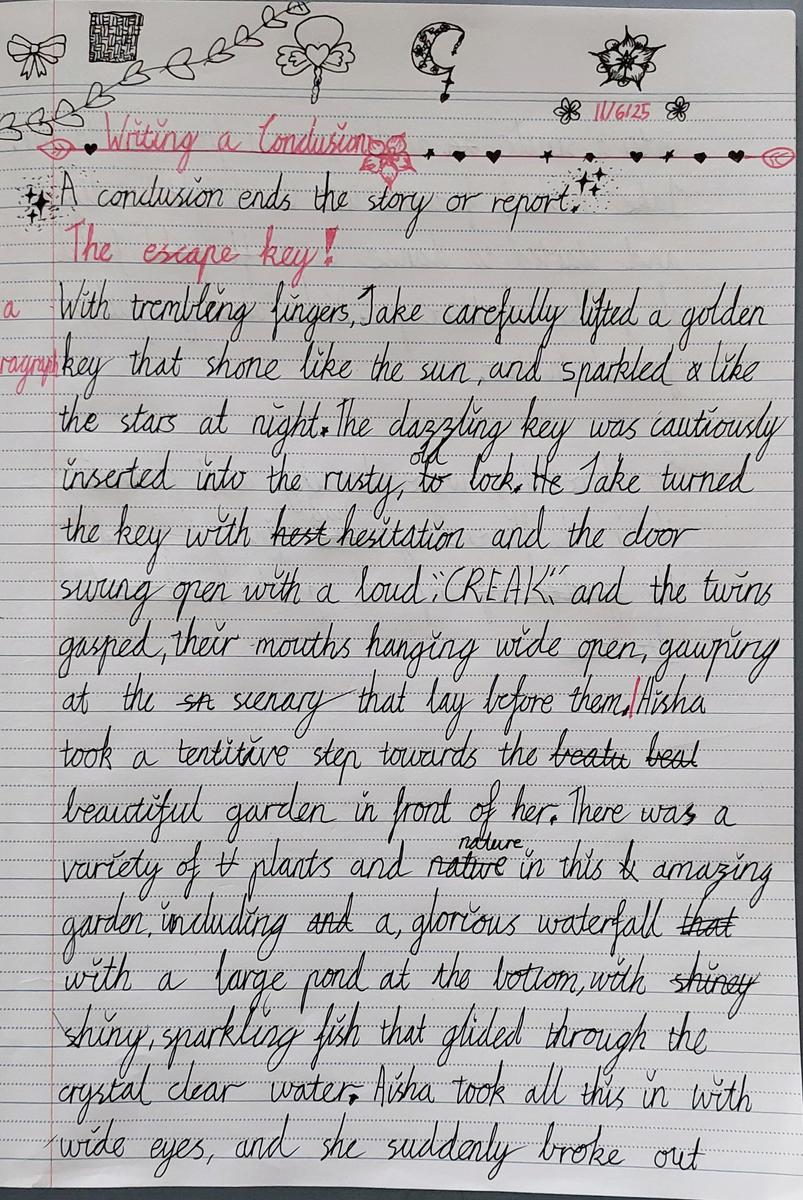 11/6/25
Writing a Conclusion
A conclusion ends the story or report.
The escape key!
a With trembling fingers, Jake carefully lifted a golden
ragraph key that shone like the sun, and sparkled like
the stars at night. The dazzling key was cautiously
inserted into the rusty, old to lock. He Jake turned
the key with hest hesitation and the door
swung open with a loud "CREAK" and the twins
gasped, their mouths hanging wide open, gawping
at the sn scenary that lay before them. Aisha
took a tentitive step towards the beatu beal
beautiful garden in front of her. There was a
variety of tt plants and native nature in this amazing
garden, including and a, glorious waterfall that
with a large pond at the bottom, with shiney
shiny, sparkling fish that glided through the
crystal clear water. Aisha took all this in with
wide eyes, and she suddenly broke out